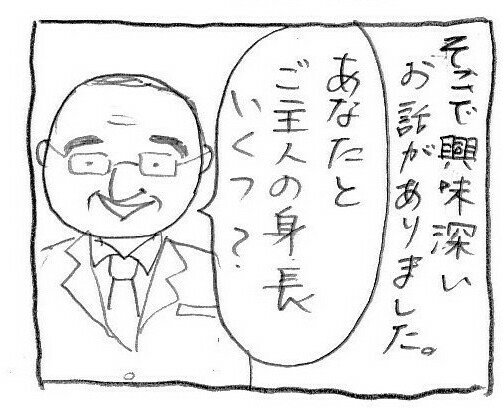 そこで興味深い
お話がありました。
あなたと
ご主人の身長
いくつ?